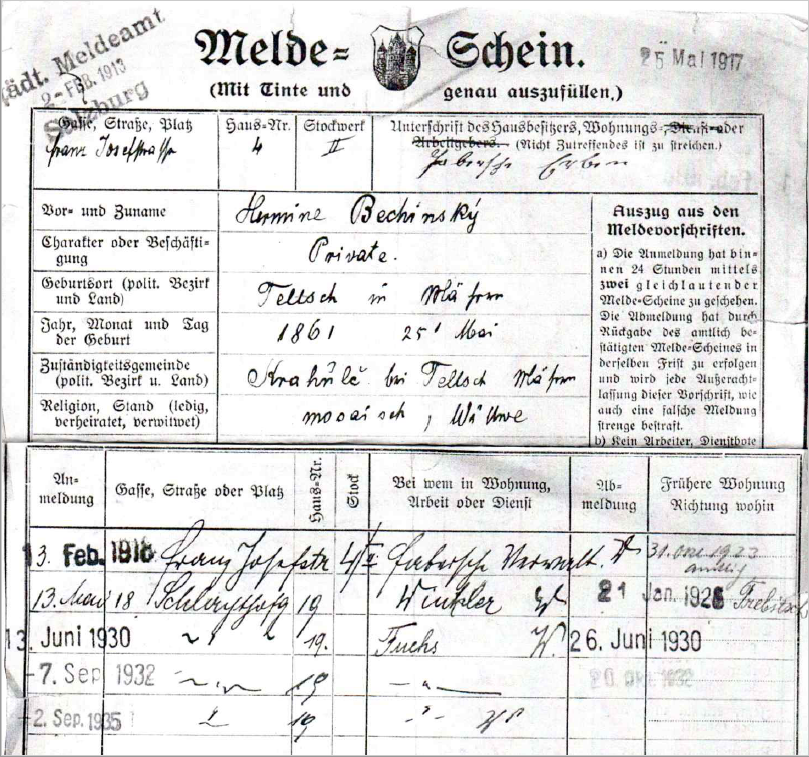 Städt. Meldeamt
2. FEB. 1913
Salzburg
Melde- Schein.
25 Mai 1917
(Mit Tinte und genau auszufüllen.)
Gasse, Straße, Platz Haus-Nr. Stockwerk Unterschrift des Hausbesitzers, Wohnungs-, Dienst- oder
Arbeitgebers. (Nicht Zutreffendes ist zu streichen.)
Franz Josefstrasse 4 II Fabersche Erben
Vor- und Zuname Hermine Bechinský
Charakter oder Beschäfti-
gung Private.
Geburtsort (polit. Bezirk
und Land) Teltsch in Mähren
Jahr, Monat und Tag
der Geburt 1861 25' Mai
Zuständigkeitsgemeinde
(polit. Bezirk u. Land) Krahulč bei Teltsch Mähren
Religion, Stand (ledig,
verheiratet, verwitwet) mosaisch, Witwe
Auszug aus den
Meldevorschriften.
a) Die Anmeldung hat bin-
nen 24 Stunden mittels
zwei gleichlautender
Melde-Scheine zu geschehen.
Die Abmeldung hat durch
Rückgabe des amtlich be-
stätigten Melde-Scheines in
derselben Frist zu erfolgen
und wird jede Außeracht-
lassung dieser Vorschrift, wie
auch eine falsche Meldung
strenge bestraft.
b) Kein Arbeiter, Dienstbote
An-
meldung Gasse, Straße oder Platz Haus-Nr. Stock Bei wem in Wohnung,
Arbeit oder Dienst Ab-
meldung Frühere Wohnung
Richtung wohin
13. Feb. 1918 Franz Josefstr 4 II Fabersche Verwalt. 31. 1922
13. Mai 18 19 Winkler 21 Jan. 1926 Trebitsch
13. Juni 1930 " " 19. Fuchs 26. Juni 1930
-7. Sep 1932 " 19 " 20 Okt. 1932
-2. Sep. 1935 " 19 "